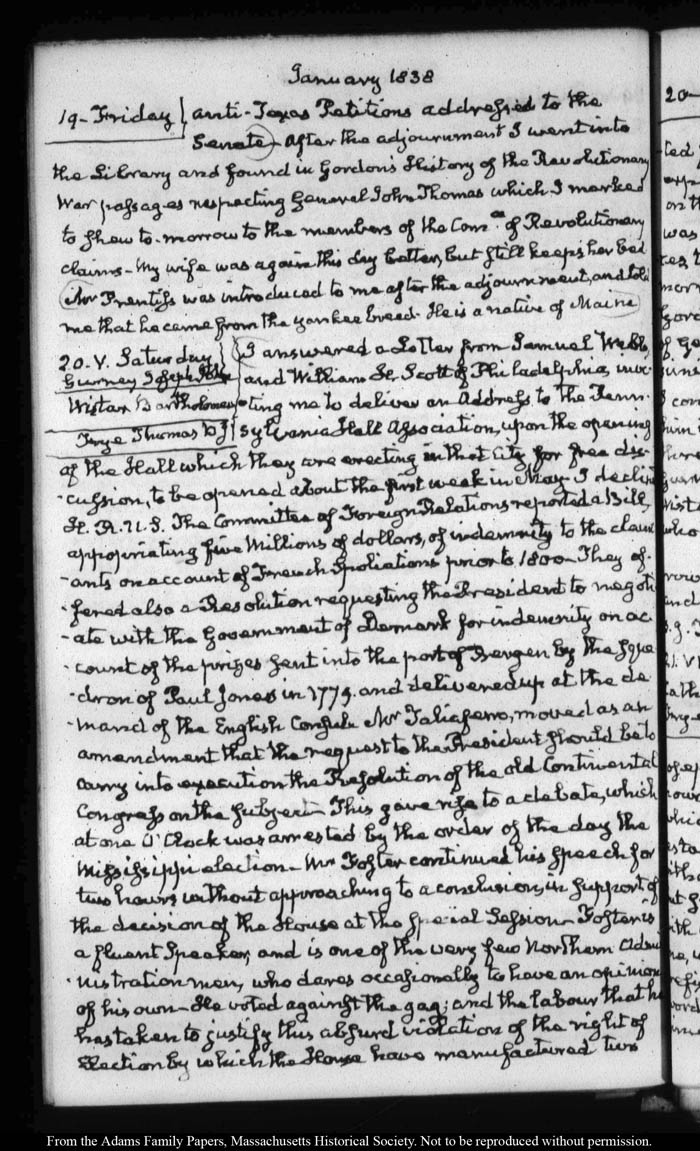 January 1838
19- Friday } anti-Texas Petitions addressed to the
Senate- After the adjournment I went into
the Library and found in Gordon's History of the Revolutionary
War passages respecting General John Thomas which I marked
to shew to-morrow to the members of the Comee. of Revolutionary
claims- My wife was again this day better, but still keeps her bed
Mr Prentiss was introduced to me after the adjournment, and told
me that he came from the yankee breed. He is a native of Maine
20. V. Saturday } I answered a Letter from Samuel Webb,
Gurney Joseph John and William H. Scott of Philadelphia, invi-
Wistar Bartholomew ting me to deliver an Address to the Penn-
Frye Thomas D J sylvania Hall Association, upon the opening
of the Hall which they are erecting in that City for free dis-
-cussion, to be opened about the first week in May. I declin
H. R. U. S. The Committee of Foreign Relations reported a Bill,
appropriating five Millions of dollars, of indemnity to the claim
-ants on account of French Spoliations prior to 1800- They of-
-fered also a Resolution requesting the President to negoti
-ate with the Government of Demark for indemnity on ac
-count of the prizes sent into the port of Bergen by the squa
-dron of Paul Jones in 1779. and delivered up at the de
-mand of the English Consul. Mr Taliaferro, moved as an
amendment that the request to the President should be to
carry into execution the Resolution of the old Continental
Congress on the subject- This gave rise to a debate, which
at one O'Clock was arrested by the order of the day the
Mississippi election- Mr Foster continued his speech for
two hours without approaching to a conclusion, in support of
the decision of the House at the special Session- Foster is
a fluent Speaker, and is one of the very few Northern Admi
-nistration men, who dares occasionally to have an opinion
of his own- He voted against the gag; and the labour that he
has taken to justify this absurd violation of the right of
Election by which the House have manufactured two
20-
From the Adams Family Papers, Massachusetts Historical Society. Not to be reproduced without permission.